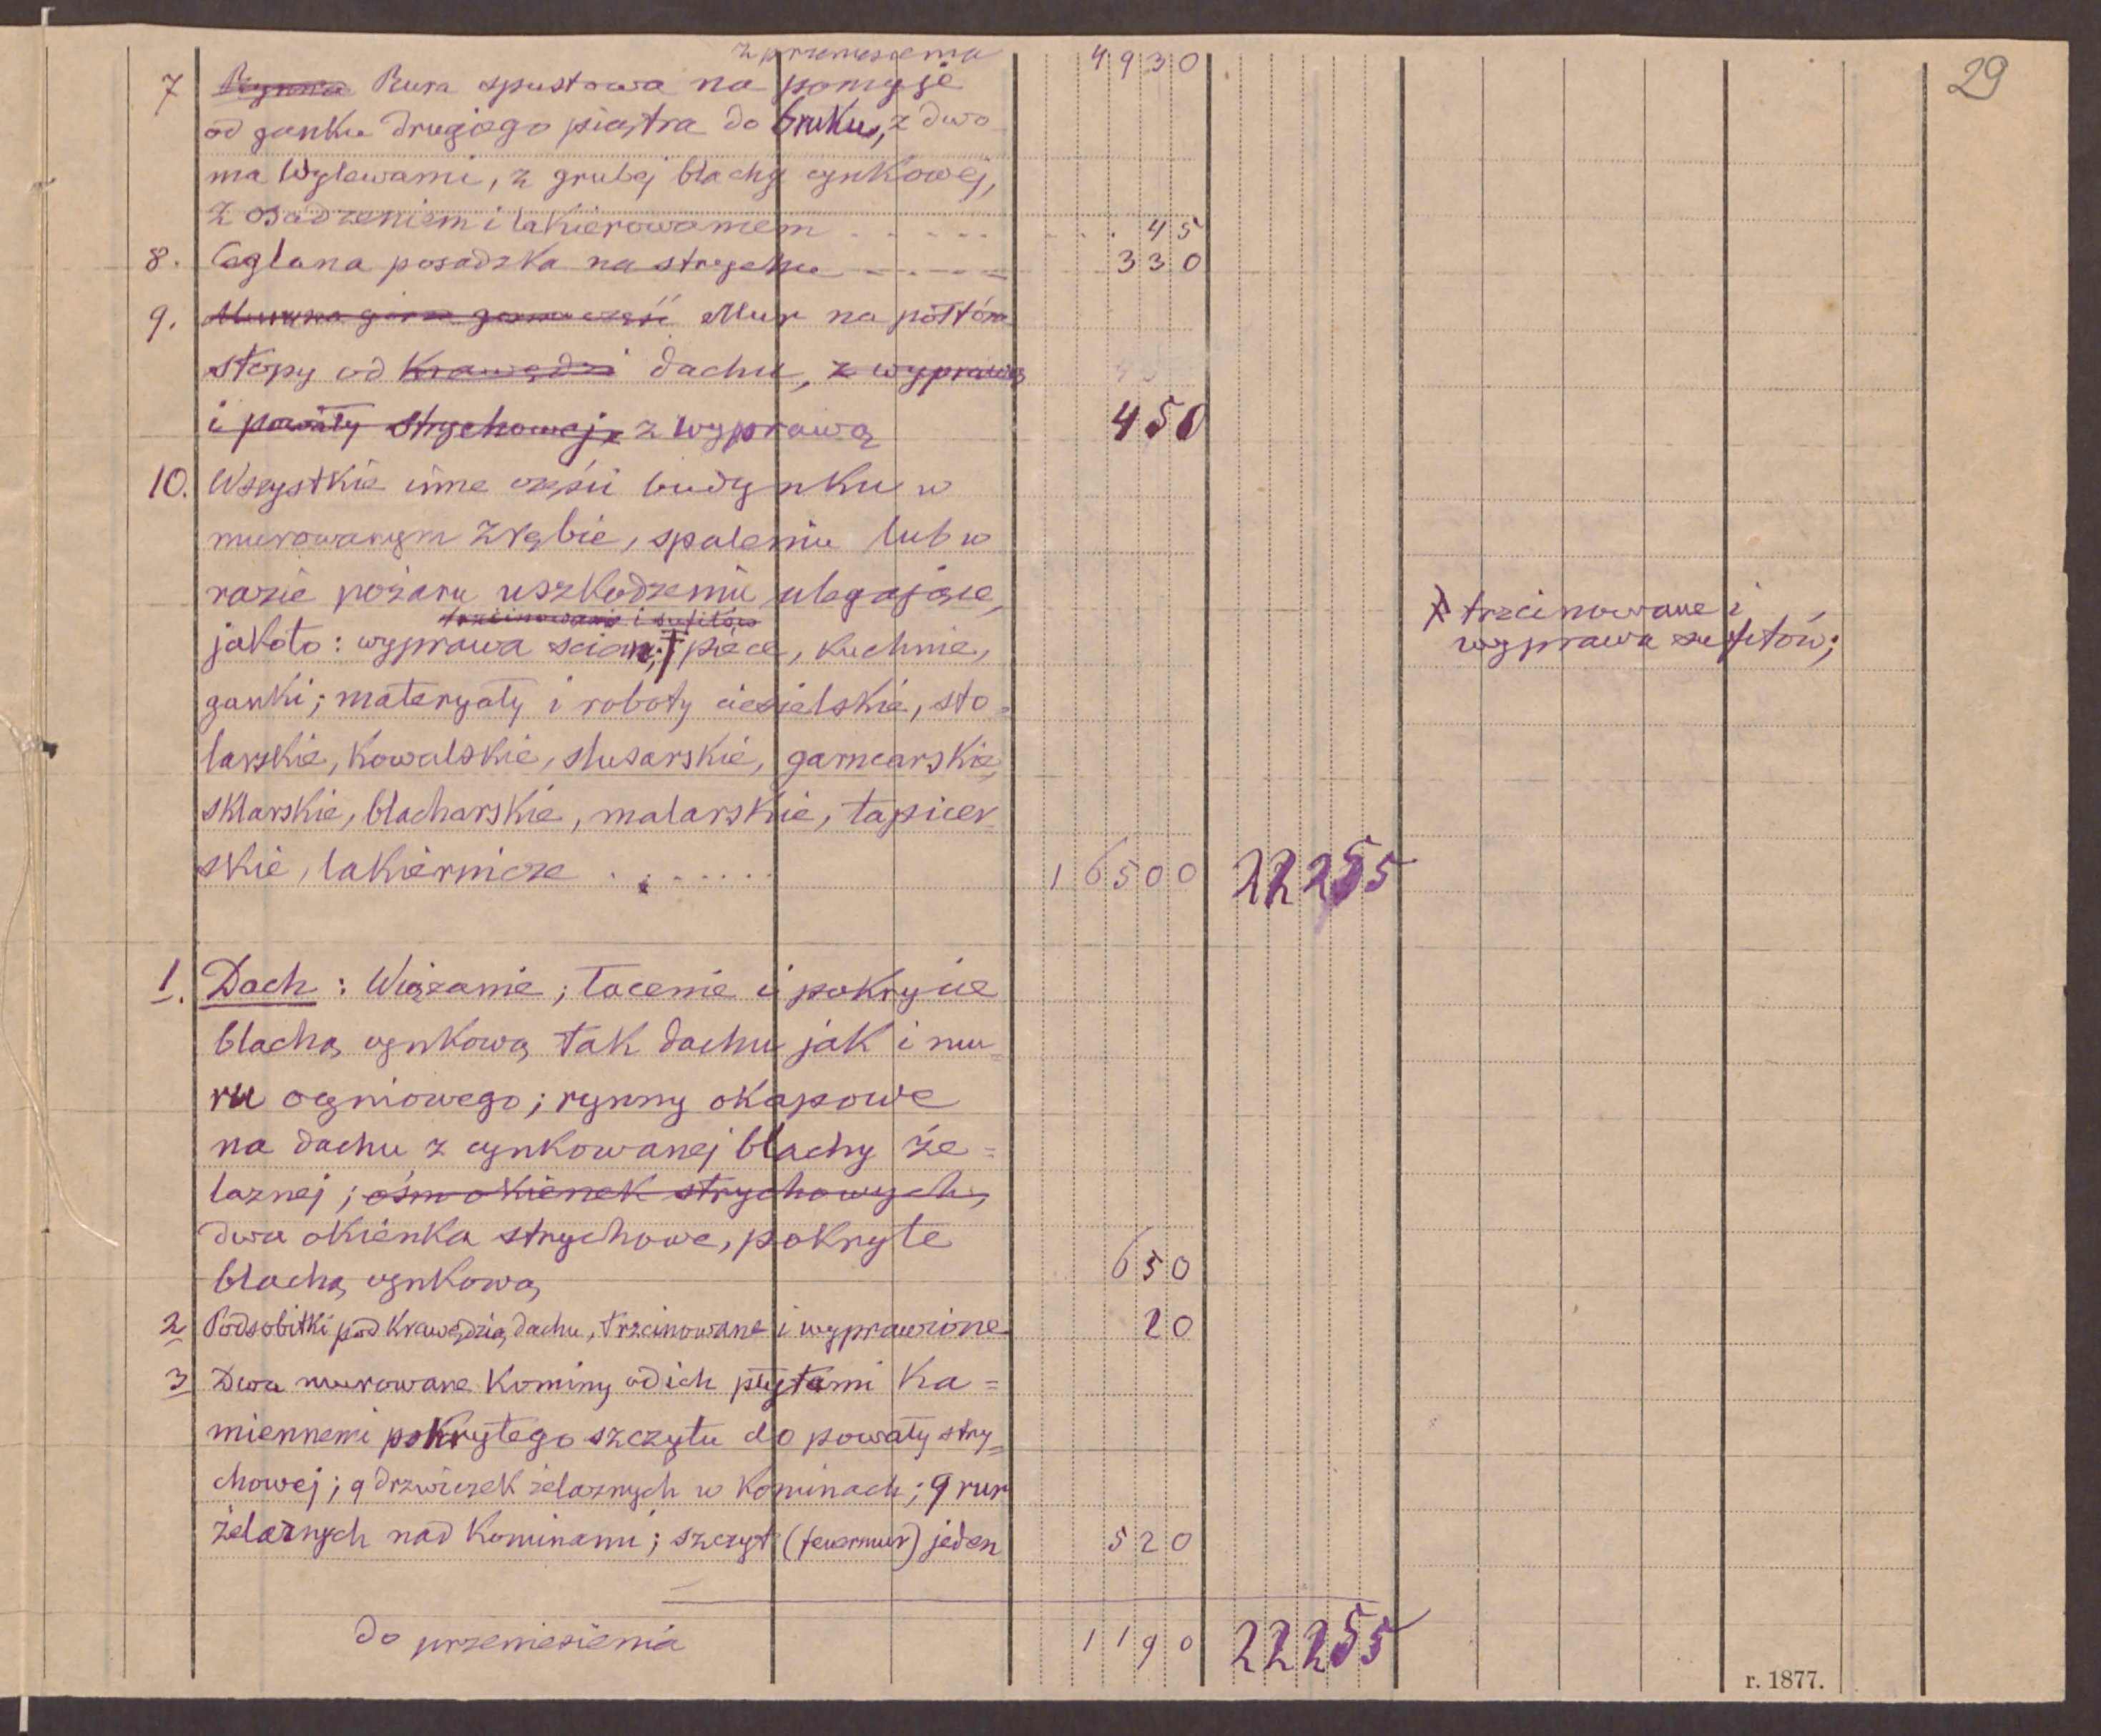 z przeniesienia 4930
29
7 Rynna Rura spustowa na pomyje
od ganku drugiego piątra do bruku, z dwo
ma wylewami, z grubej blachy cynkowej,
z osadzeniem i lakierowaniem . . . . . . . . 45
8. Ceglana posadzka na strychu . . . . . 330
9. Mur na półtóra
stopy od krawędzi dachu, z wyprawą
i powały strychowej, z wyprawą 450
10. Wszystkie inne części budynku w
murowanym zrębie, spaleniu lub w
razie pożaru uszkodzeniu ulegające,
trzcinowanie i sufitów
jakoto: wyprawa ścian; † piece, kuchnie,
ganki; materyały i roboty ciesielskie, sto=
larskie, kowalskie, slusarskie, garncarskie,
sklarskie, blacharskie, malarskie, tapicer
skie, lakiernicze . . . . . . . 16500 22255
trzcinowane i
wyprawa sufitów;
1. Dach: Wiązanie; łacenie i pokrycie
blachą cynkową tak dachu jak i mu=
ru ogniowego; rynny okapowe
na dachu z cynkowanej blachy że=
laznej; ośm okienek strychowych,
dwa okienka strychowe, pokryte
blachą cynkową 650
2 Podsobitki pod krawędzią dachu, trzcinowane i wyprawione 20
3 Dwa murowane kominy od ich płytami ka=
miennemi pokrytego szczytu do powały stry=
chowej; 9 drzwiczek żelaznych w kominach; 9 rur
żelaznych nad kominami; szczyt (feuermur) jeden 520
do przeniesienia 1190 22255
r. 1877.